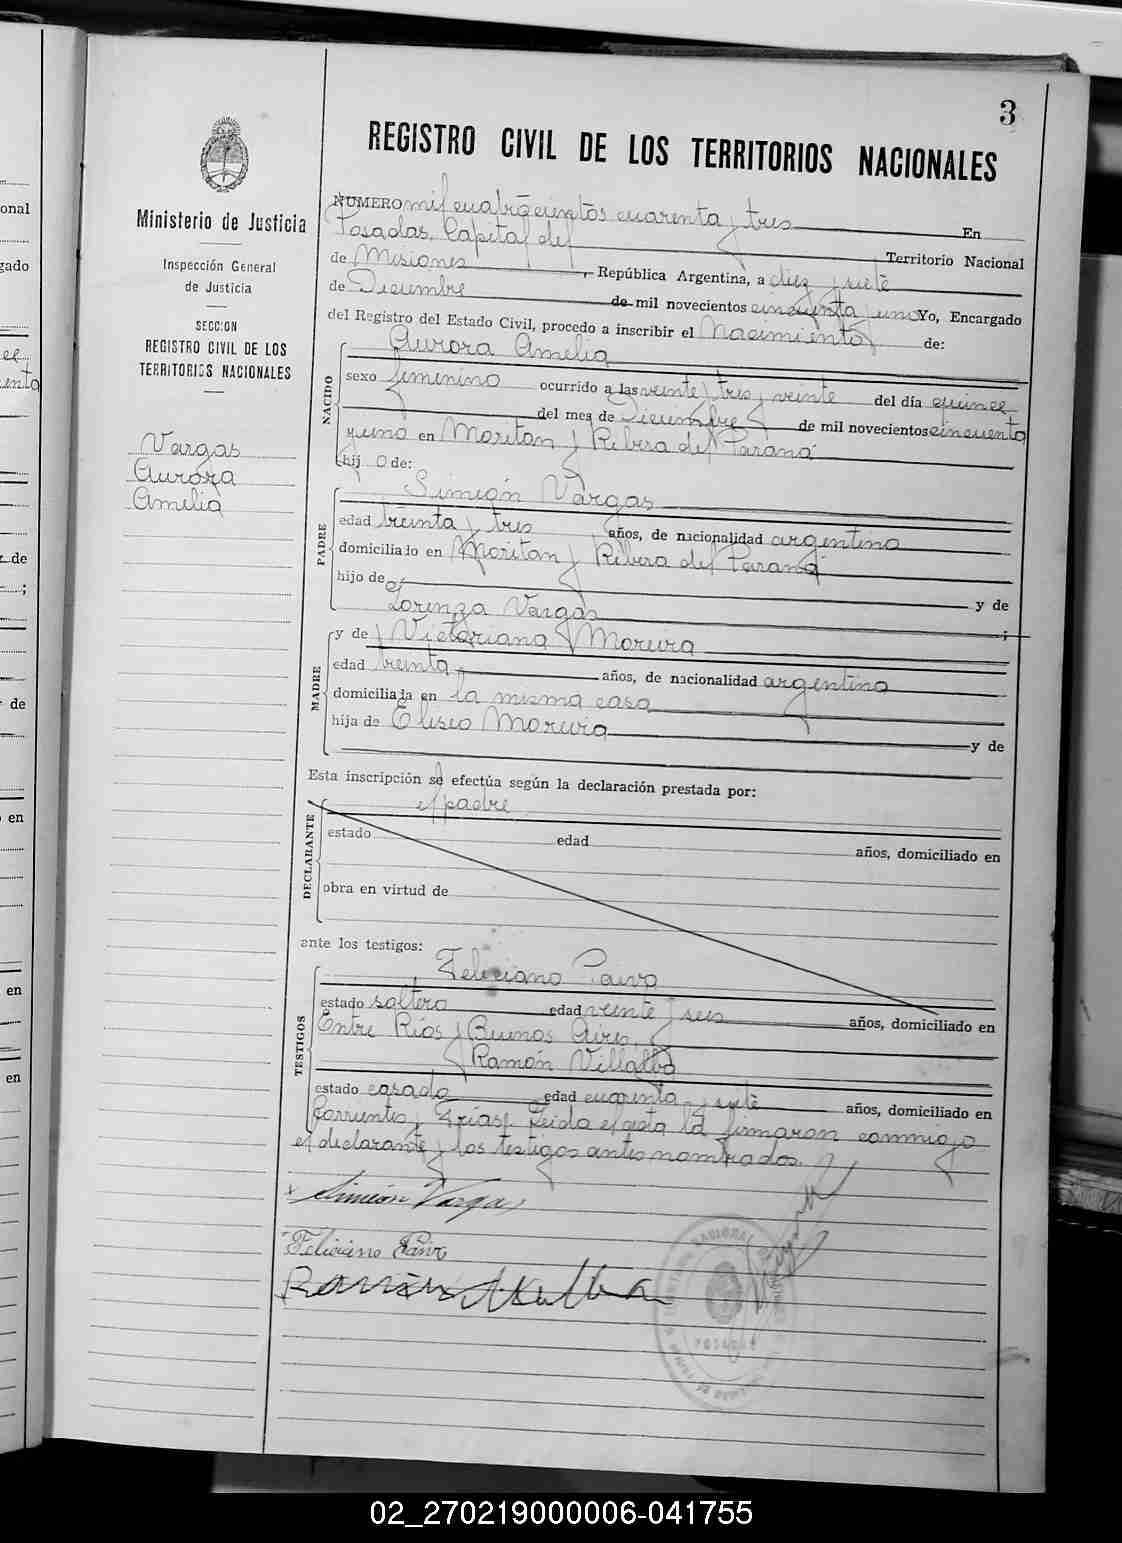 3
REGISTRO CIVIL DE LOS TERRITORIOS NACIONALES
Ministerio de Justicia
Inspección General
de Justicia
SECCION
REGISTRO CIVIL DE LOS
TERRITORIOS NACIONALES
Vargas
Aurora
Amelia
NUMERO mil cuatrocientos cuarenta y tres En
Posadas, Capital del Territorio Nacional
de Misiones, República Argentina, a diez y siete
de Diciembre de mil novecientos cincuenta y uno Yo, Encargado
del Registro del Estado Civil, procedo a inscribir el Nacimiento de:
NACIDO
Aurora Amelia
sexo femenino ocurrido a las veinte y tres y veinte del día quince
del mes de Diciembre de mil novecientos cincuenta
y uno en Moritan y Ribera del Paraná
hij a de:
PADRE
Simeón Vargas
edad treinta y tres años, de nacionalidad argentina
domiciliado en Moritan y Ribera del Paraná
hijo de y de
Lorenza Vargas ;
MADRE
y de Victoriana Moreira
edad treinta años, de nacionalidad argentina
domiciliada en la misma casa
hija de Eliseo Moreira y de
Esta inscripción se efectúa según la declaración prestada por:
DECLARANTE
el padre
estado edad años, domiciliado en
obra en virtud de
ante los testigos:
TESTIGOS
Feliciano Paiva
estado soltero edad veinte y seis años, domiciliado en
Entre Ríos y Buenos Aires,
Ramón Villalba
estado casado edad cuarenta y siete años, domiciliado en
Corrientes y Frías. Leida el acta la firmaron conmigo
el declarante y los testigos antes nombrados.
Simeón Vargas
Feliciano Paiva
Ramón Villalba
POSADAS
02_270219000006-041755